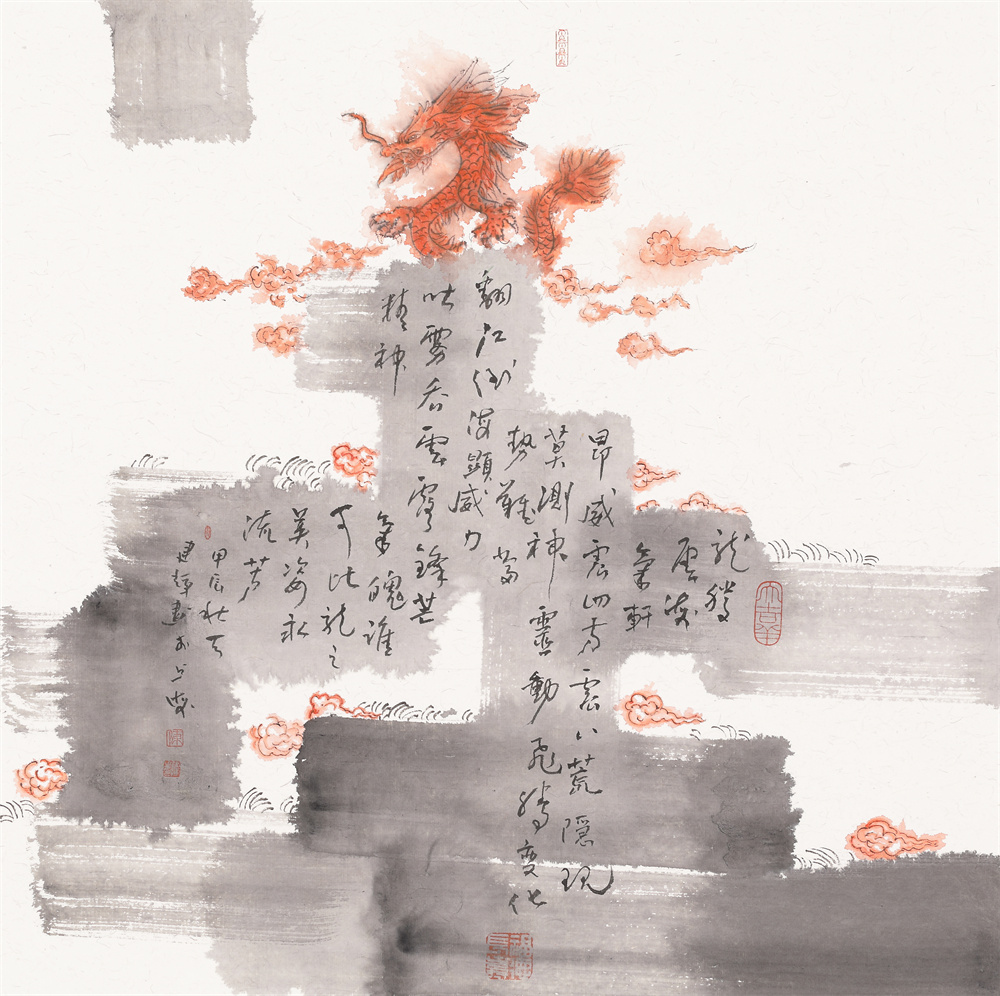 龍騰
海
氣軒
昂威震四方震八荒隱現
莫測神靈動飛騰變化
勢難當
翻江倒海顯威力
吐霧吞雲露鋒芒
精神
氣魄誰
可比龍之
英姿永
流芳
甲辰秋天
建輝畫於上海